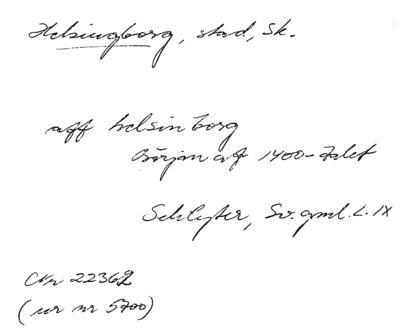 Helsingborg, stad, Sk.
aff helsinborg
Början af 1400-talet
Schlyter, Sv. gml. L. IX
22362
(ur nr 5700)